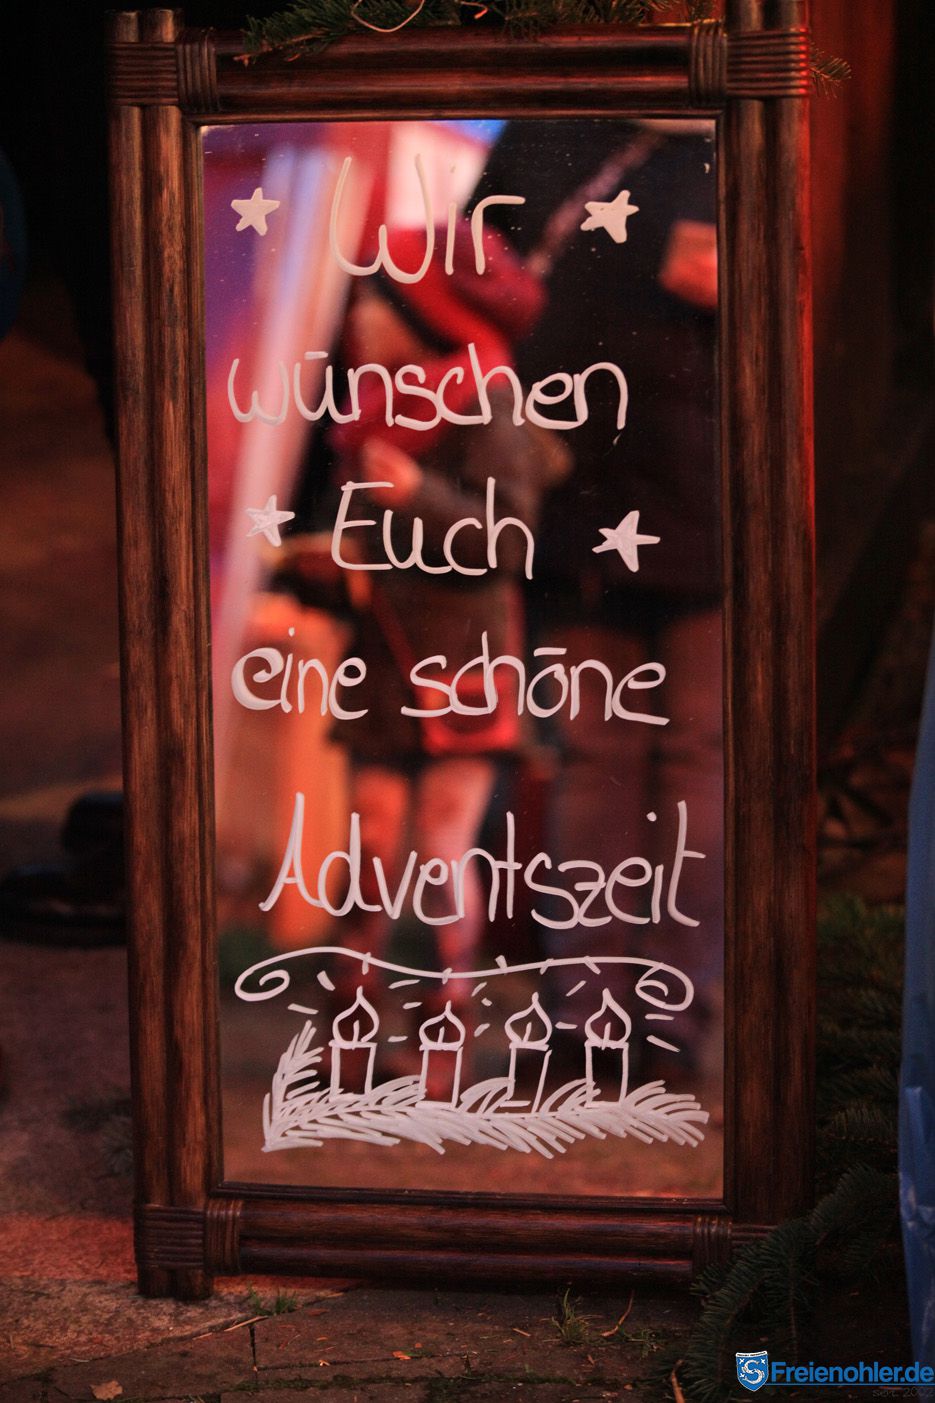 Wir
wünschen
Euch
eine schöne
Adventszeit
Freienohler.de
seit 2002